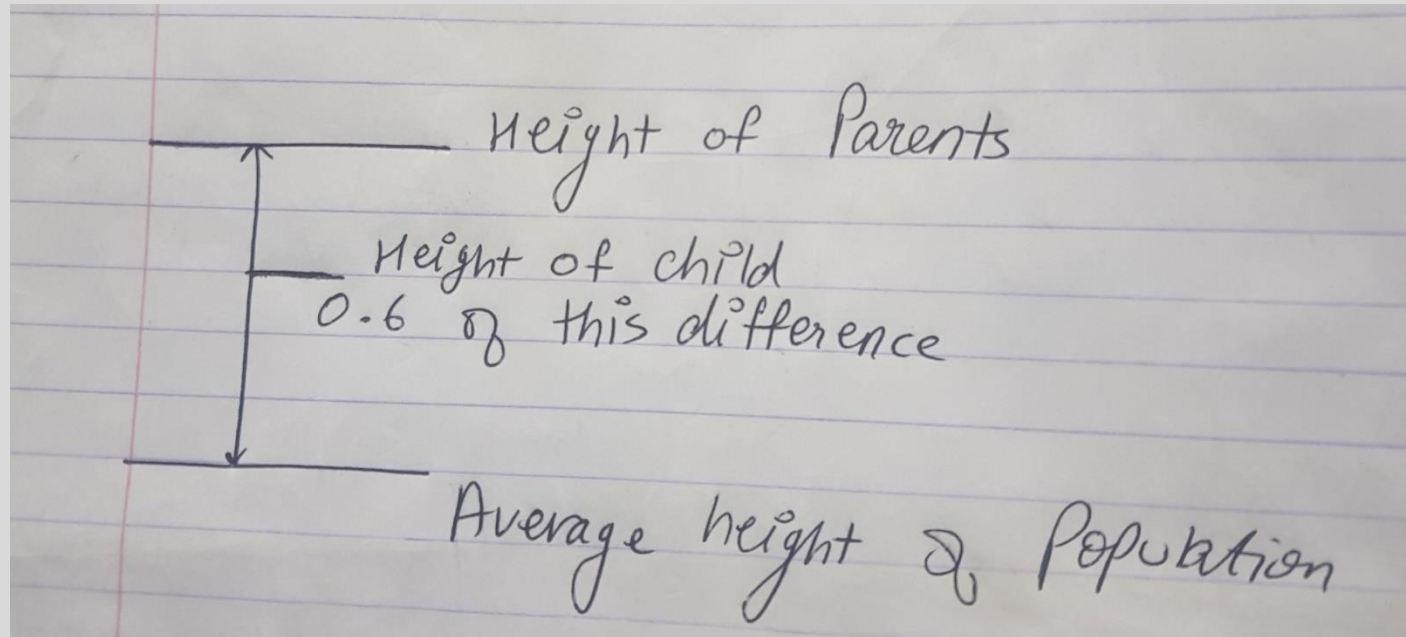 Height of Parents
Height of child
0.6 of this difference
Average height of Population